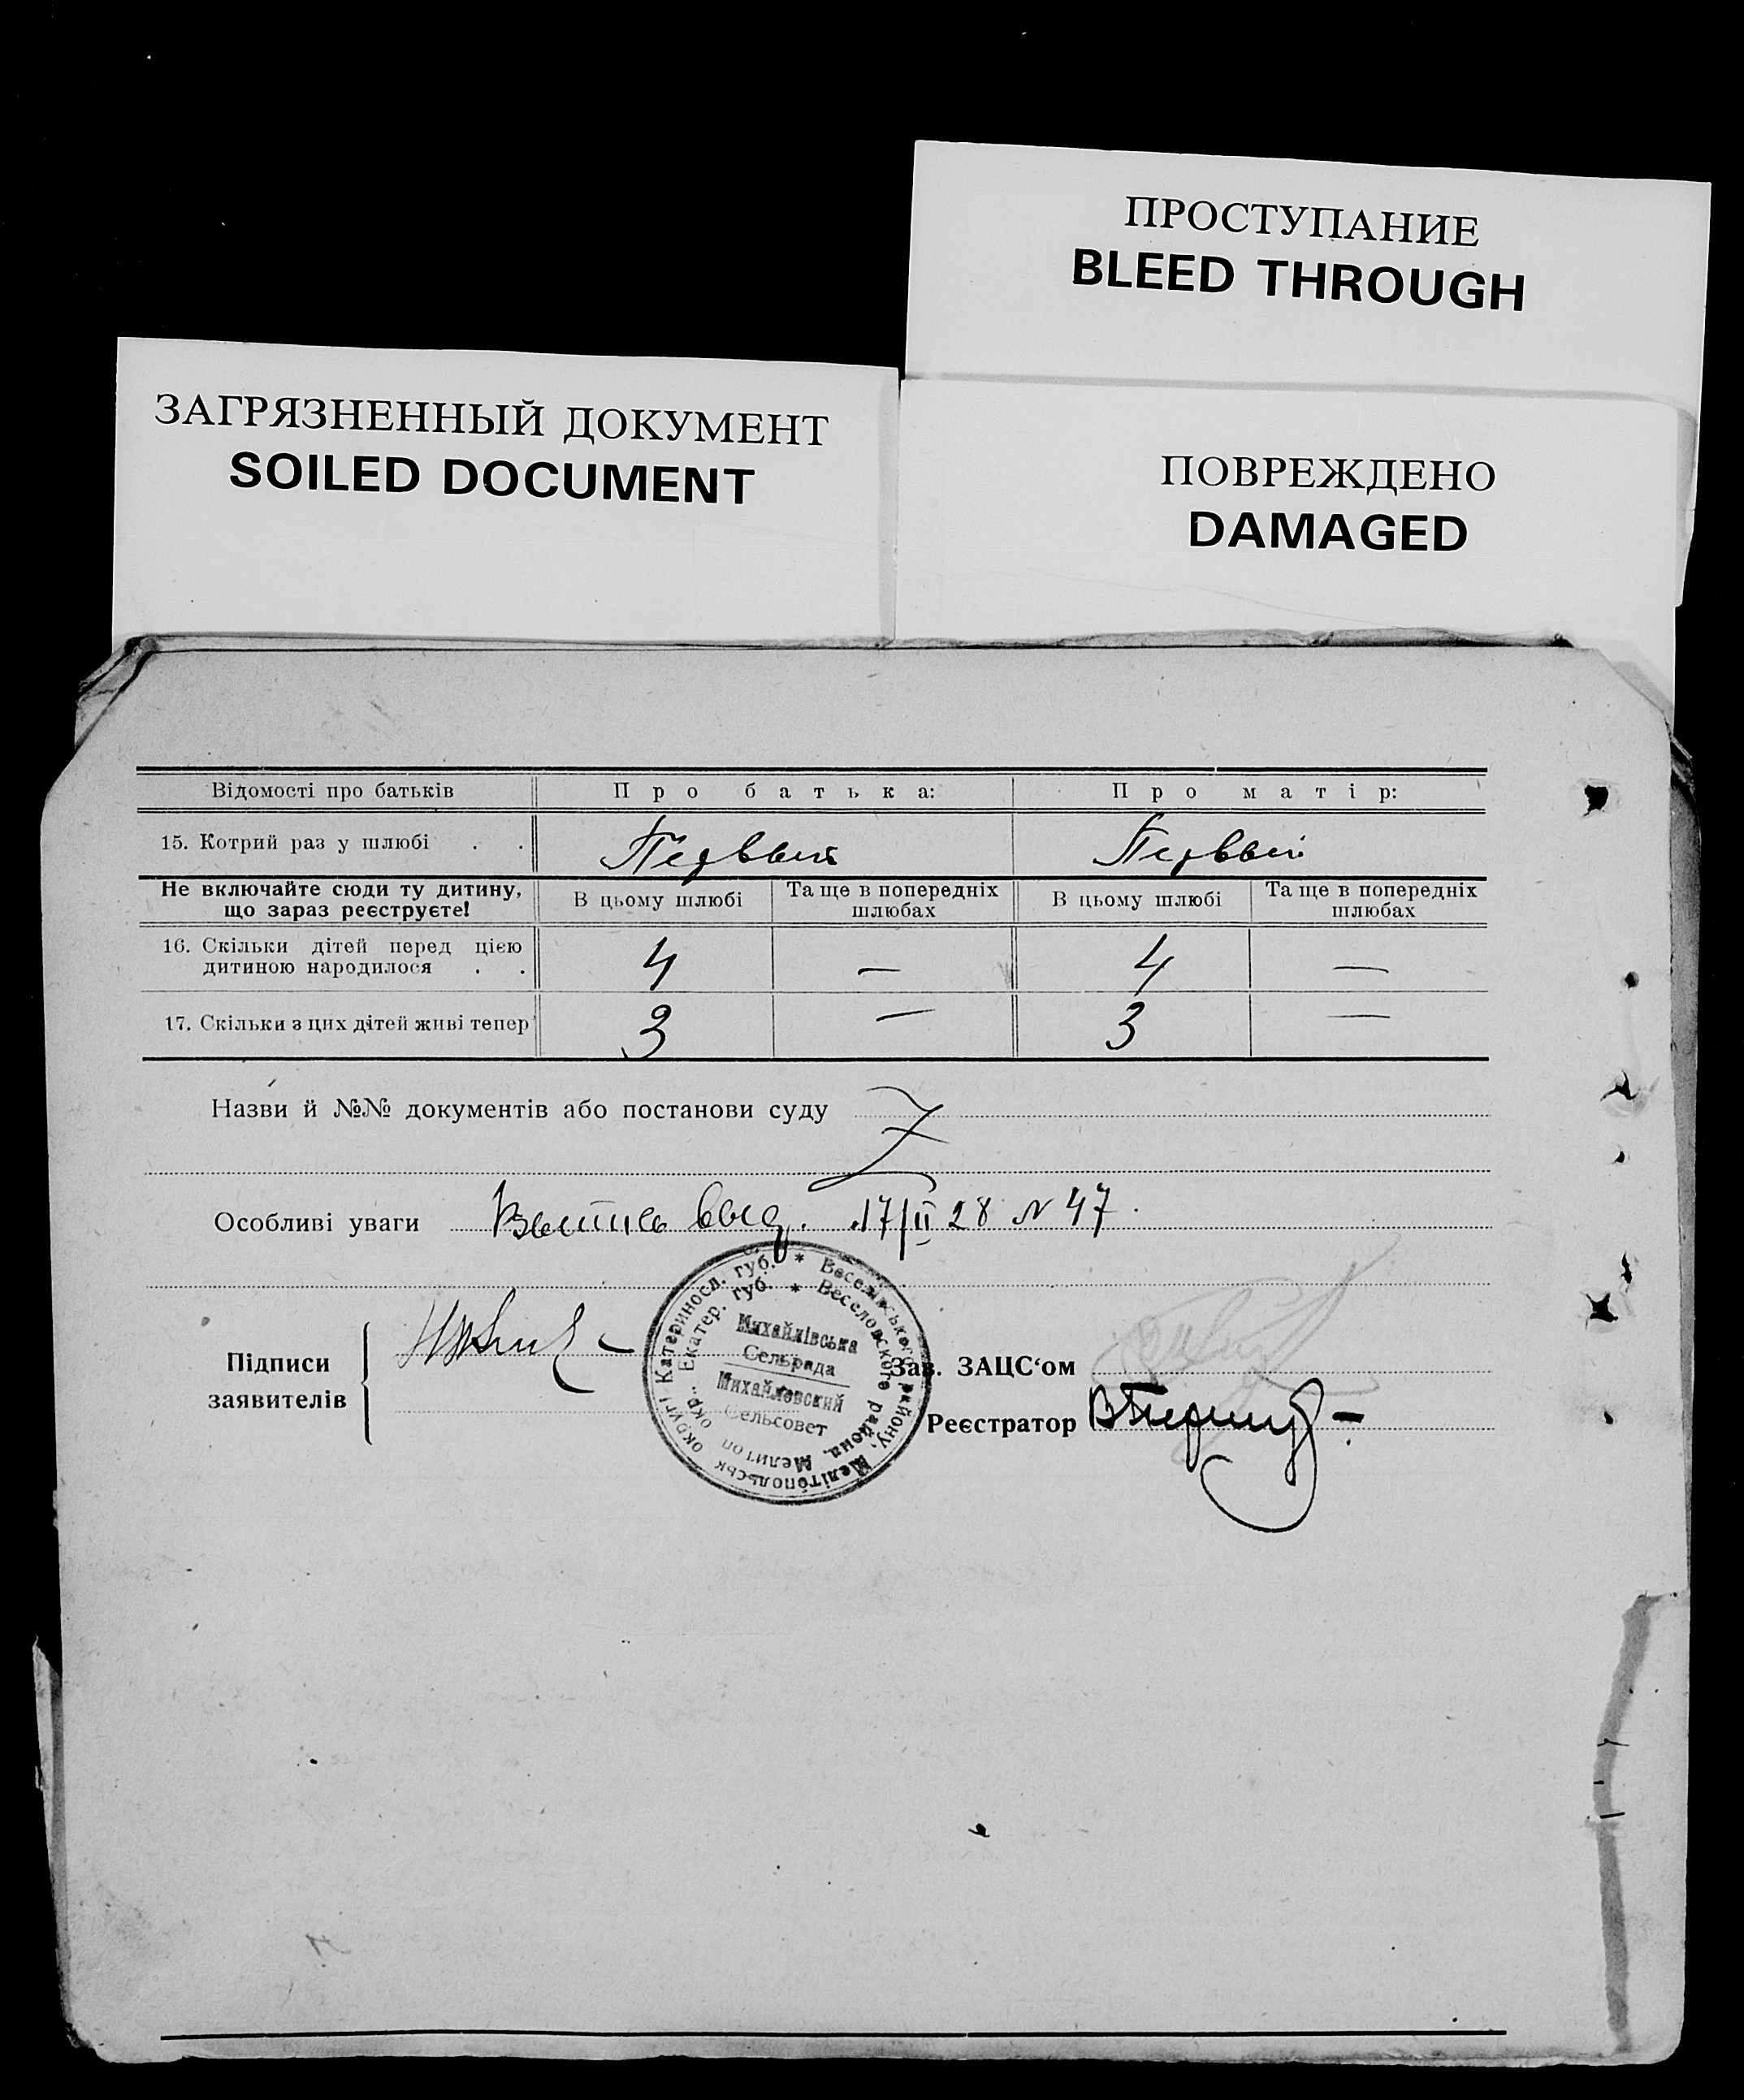 ПРОСТУПАНИЕ
BLEED THROUGH
ЗАГРЯЗНЕННЫЙ ДОКУМЕНТ
SOILED DOCUMENT
ПОВРЕЖДЕНО
DAMAGED
Відомості про батьків Про батька: Про матір:
15. Котрий раз у шлюбі . . Первый Первый
Не включайте сюди ту дитину, що зараз реєструєте! В цьому шлюбі Та ще в попередніх шлюбах В цьому шлюбі Та ще в попередніх шлюбах
16. Скільки дітей перед цією дитиною народилося . . 4 — 4 —
17. Скільки з цих дітей живі тепер 3 — 3 —
Назви й №№ документів або постанови суду
Особливі уваги Выпись выд. 17/II 28 N 47.
Підписи заявителів
Зав. ЗАЦС‘ом
Реєстратор
Катериносл. губ. * Веселівського району, Мелітопольськ округі
Екатер. губ. * Веселовского района, Мелитоп окр.
Михайлівська
Сельрада
Михайловский
Сельсовет